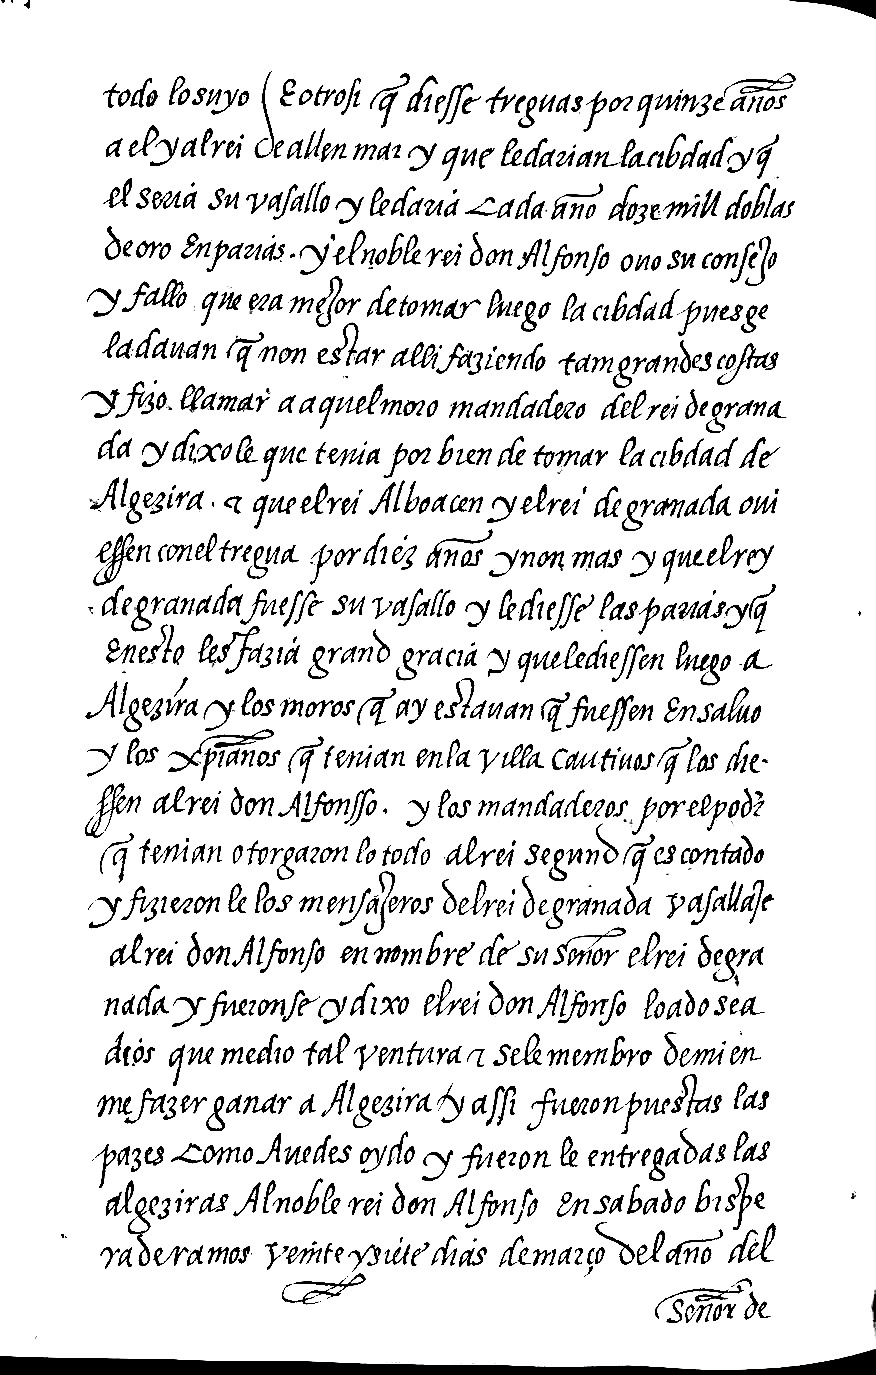 todo lo suyo / E otrosi q̃ diesse treguas por quinze años
a el y al rei de allen mar y que le darian la cibdad y q̃
el seria su vasallo y le daria cada año doze mill doblas
de oro En parias. y el noble rei don Alfonso ouo su consejo
y fallo que era mejor de tomar luego la cibdad pues ge
la dauan q̃ non estar alli faziendo tam grandes costas
y fizo llamar a aquel moro mandadero del rei de grana
da y dixole que tenia por bien de tomar la cibdad de
Algezira. & que el rei Alboacen y el rei de granada oui
essen con el tregua por diez años y non mas y que el rey
de granada fuesse su vasallo y le diesse las parias y q̃
En esto les fazia grand gracia y que le diessen luego a
Algezira y los moros q̃ ay estauan q̃ fuessen En saluo
y los xp̃ianos q̃ tenian en la villa cautiuos q̃ los die-
ssen al rei don Alfonsso. y los mandaderos por el podr̃
q̃ tenian otorgaron lo todo al rei segund q̃ es contado
y fizieron le los mensajeros del rei de granada vasallaje
al rei don Alfonso en nombre de su señor el rei de gra
nada y fueronse y dixo el rei don Alfonso loado sea
dios que me dio tal ventura & se le membro de mi en
me fazer ganar a Algezira y assi fueron puestas las
pazes como Auedes oydo y fueron le entregadas las
algeziras Al noble rei don Alfonso En sabado bispe
ra de ramos veinte y siete dias de março del año del
Señor de